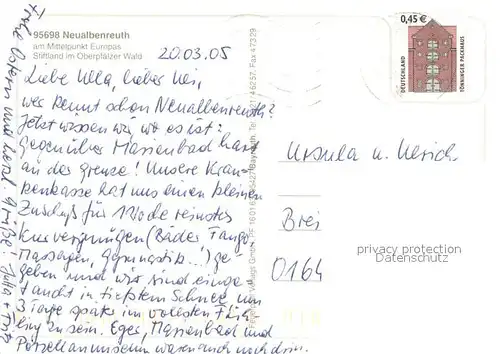 95698 Neualbenreuth
am Mittelpunkt Europas
Stiftland im Oberpfälzer Wald
20.03.05
Liebe Ulla, lieber Uli,
wer kennt schon Neualbenreuth?
Jetzt wissen wir, wo es ist:
Gegenüber Marienbad hart
an der Grenze! Unsere Kran-
kenkasse hat uns einen kleinen
Zuschuß für 1 Woche reinstes
Kurvergnügen (Bäder, Fango,
Massagen, Gymnastik...) ge-
geben und wir sind einge-
taucht in tiefstem Schnee, um
3 Tage später im vollsten Früh-
ling zu sein. Eger, Marienbad und
Porzellanmuseum waren auch noch drin.
Frohe Ostern und herzl. Grüße!
0,45 €
DEUTSCHLAND
TÖNNINGER PACKHAUS
Ursula u. Ulrich
Brei
0164
privacy protection
Datenschutz